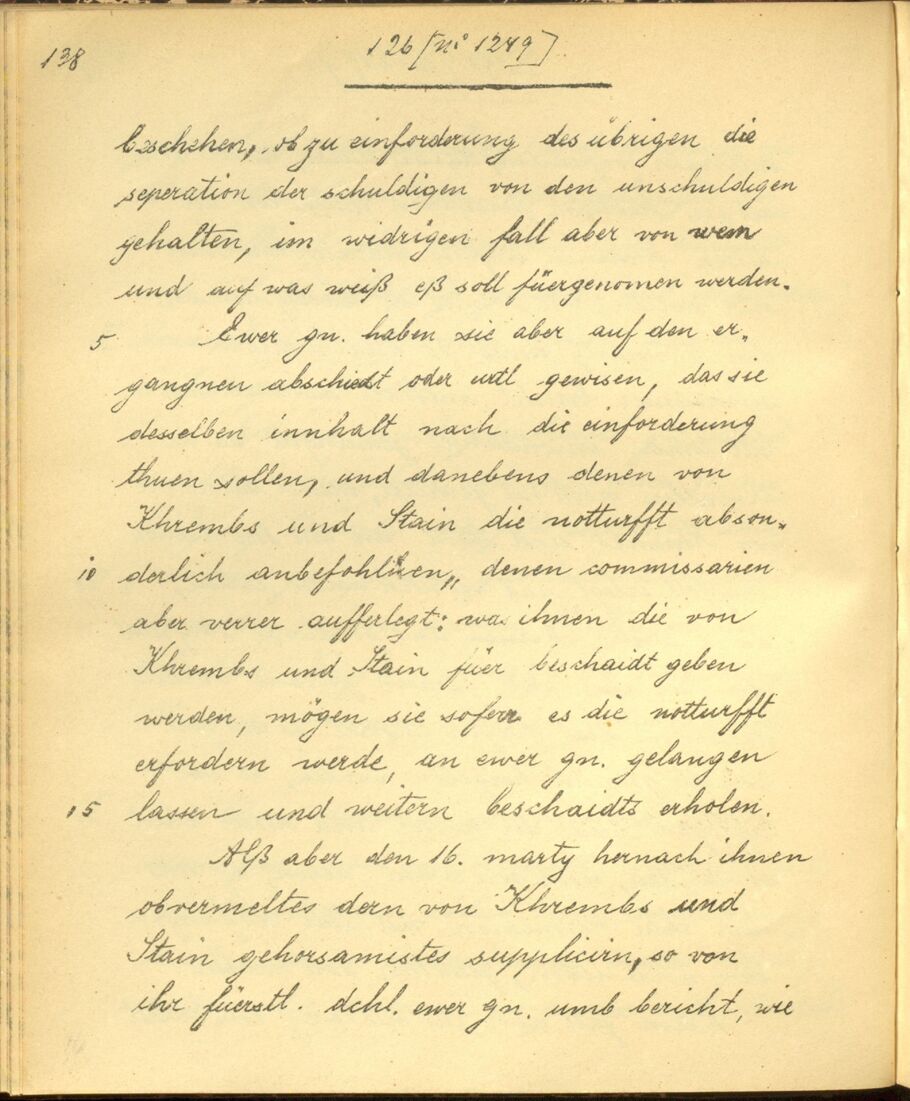 138
126 [no 1249]
beschehen, ob zu einforderung des übrigen die
seperation der schuldigen von den unschuldigen
gehalten, im widrigen fall aber von wem
und auf was weiß eß soll füergenomen werden.
5 Ewer gn. haben sie aber auf den er„
gangnen abschiedt oder urtl gewisen, das sie
desselben innhalt nach die einforderung
thuen sollen, und danebens denen von
Khrembs und Stain die notturfft abson„
10 derlich anbefohlen„ denen commissarien
aber verrer aufferlegt: was ihnen die von
Khrembs und Stain füer beschaidt geben
werden, mögen sie sofern es die notturfft
erfordern werde, an ewer gn. gelangen
15 lassen und weitern beschaidts erholen.
Alß aber den 16. marty hernach ihnen
obvermeltes dern von Khrembs und
Stain gehorsamistes supplicirn, so von
ihr füerstl. dchl. ewer gn. umb bericht, wie